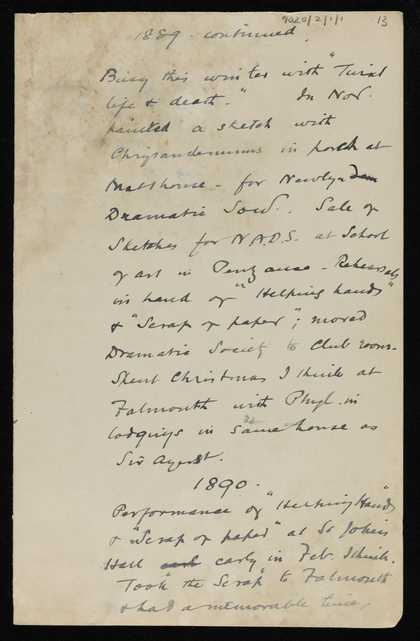 9020/2/1/1 13
1889 - continued.
Busy this winter with "Twixt
life & death." In Nov.
painted a sketch with
Chrysanthemums in porch at
Malthouse - for Newlyn
Dramatic Socy. Sale of
Sketches for N.A.D.S. at School
of art in Penzance - Rehearsals
in hand of "Helping hands"
& "Scrap of paper"; moved
Dramatic Society to Club room.
Spent Christmas I think at
Falmouth with Phyl. in
lodgings in same house as
Sir
1890.
Performance of "Helping Hands"
& "Scrap of paper" at St John's
Hall early in Feb. I think.
Took "the Scrap" to Falmouth
& had a memorable time,